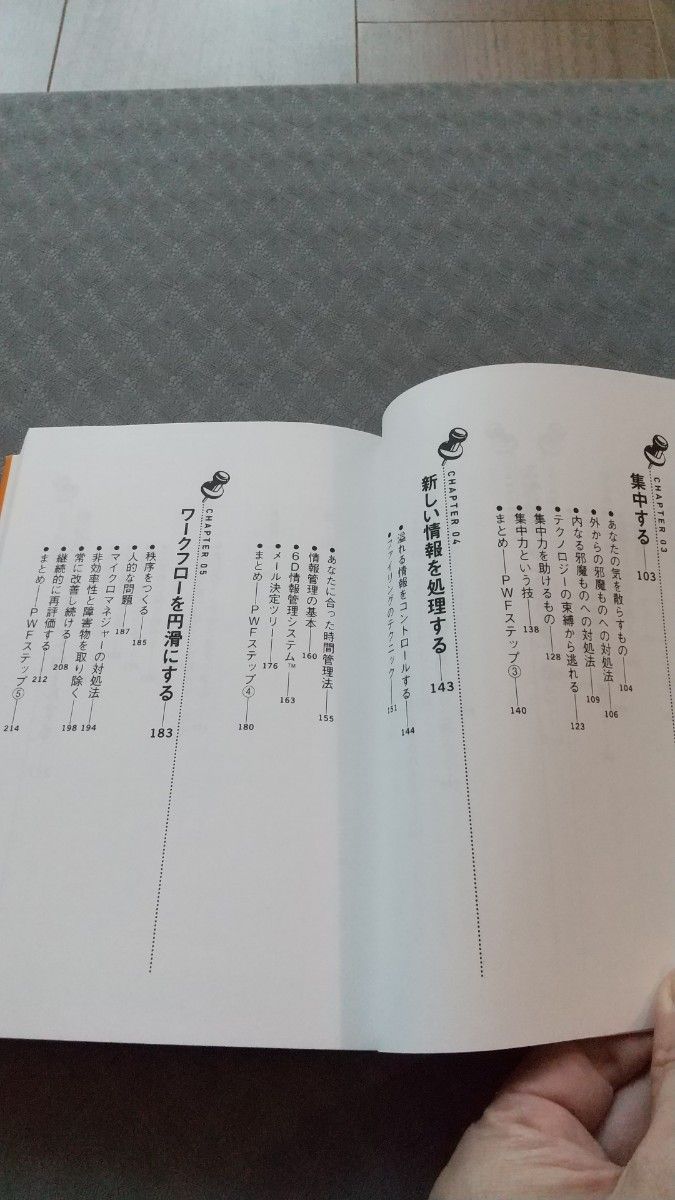 CHAPTER 03
集中する 103
●あなたの気を散らすもの 104
●外からの邪魔ものへの対処法 106
●内なる邪魔ものへの対処法 109
●テクノロジーの束縛から逃れる 123
●集中力を助けるもの 128
●集中力という技 138
●まとめ――PWFステップ③ 140
CHAPTER 04
新しい情報を処理する 143
●溢れる情報をコントロールする 144
●ファイリングのテクニック 151
●あなたに合った時間管理法 155
●情報管理の基本 160
●6D情報管理システム™ 163
●メール決定ツリー 176
●まとめ――PWFステップ④ 180
CHAPTER 05
ワークフローを円滑にする 183
●秩序をつくる 185
●人的な問題 187
●マイクロマネジャーの対処法 194
●非効率性と障害物を取り除く 198
●常に改善し続ける 208
●継続的に再評価する 212
●まとめ――PWFステップ⑤ 214